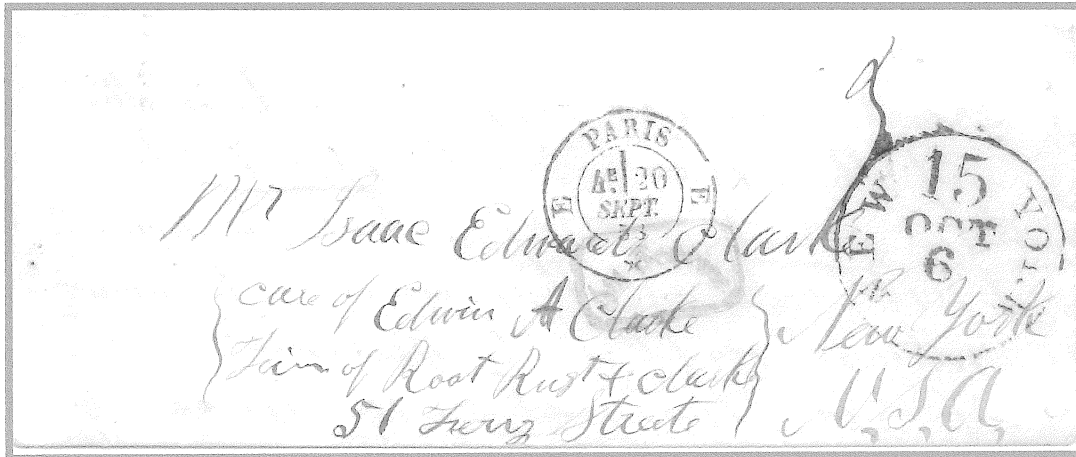 PARIS
4E 20
SEPT.
E E
15
NEW YORK
OCT
6
Mr Isaac Edward Clarke
care of Edwin A Clarke
Firm of Root Rust & Clarke
51 Ferry Streete
New York
U.S.A.